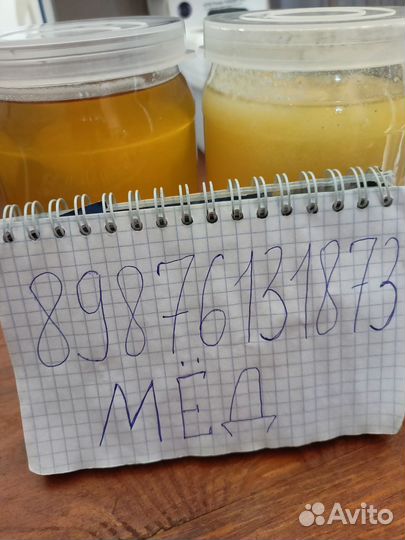 89876131873
МЁД
Avito